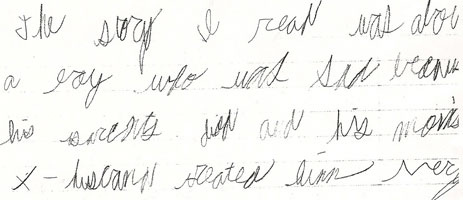 The story I read was abou
a boy who was sad becaus
his parents died and his mom's
x-husband treated him very